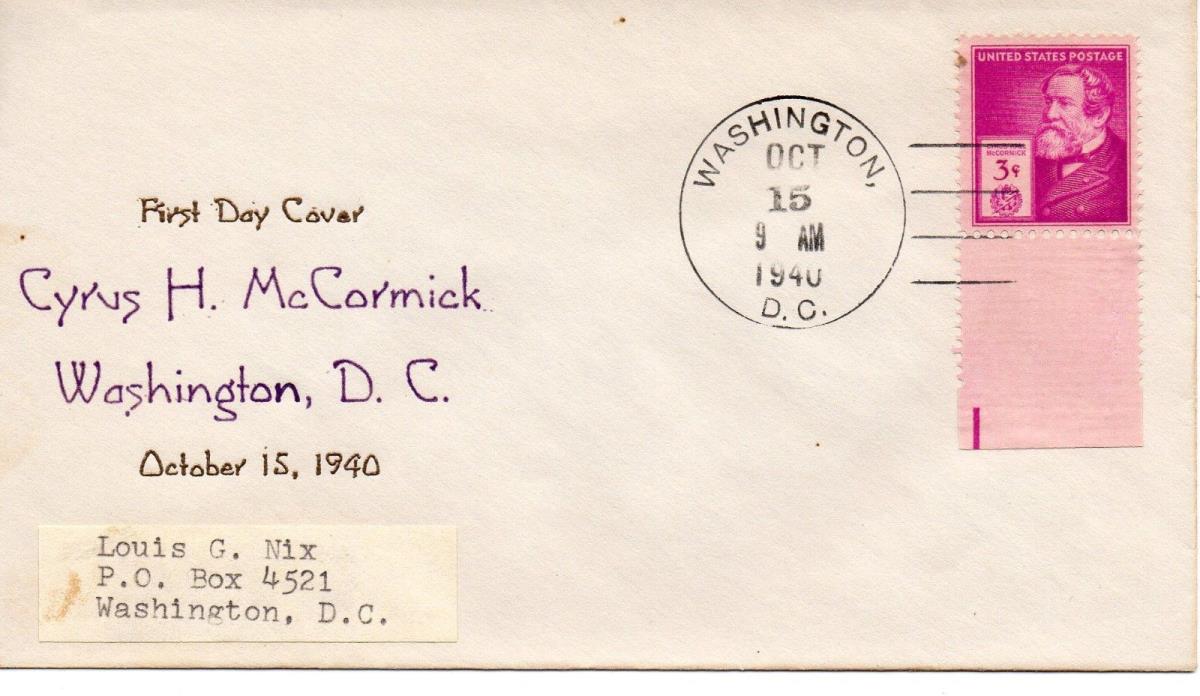 UNITED STATES POSTAGE
McCORMICK
3¢
WASHINGTON,
OCT
15
9 AM
1940
D. C.
First Day Cover
Cyrus H. McCormick
Washington, D. C.
October 15, 1940
Louis G. Nix
P.O. Box 4521
Washington, D.C.